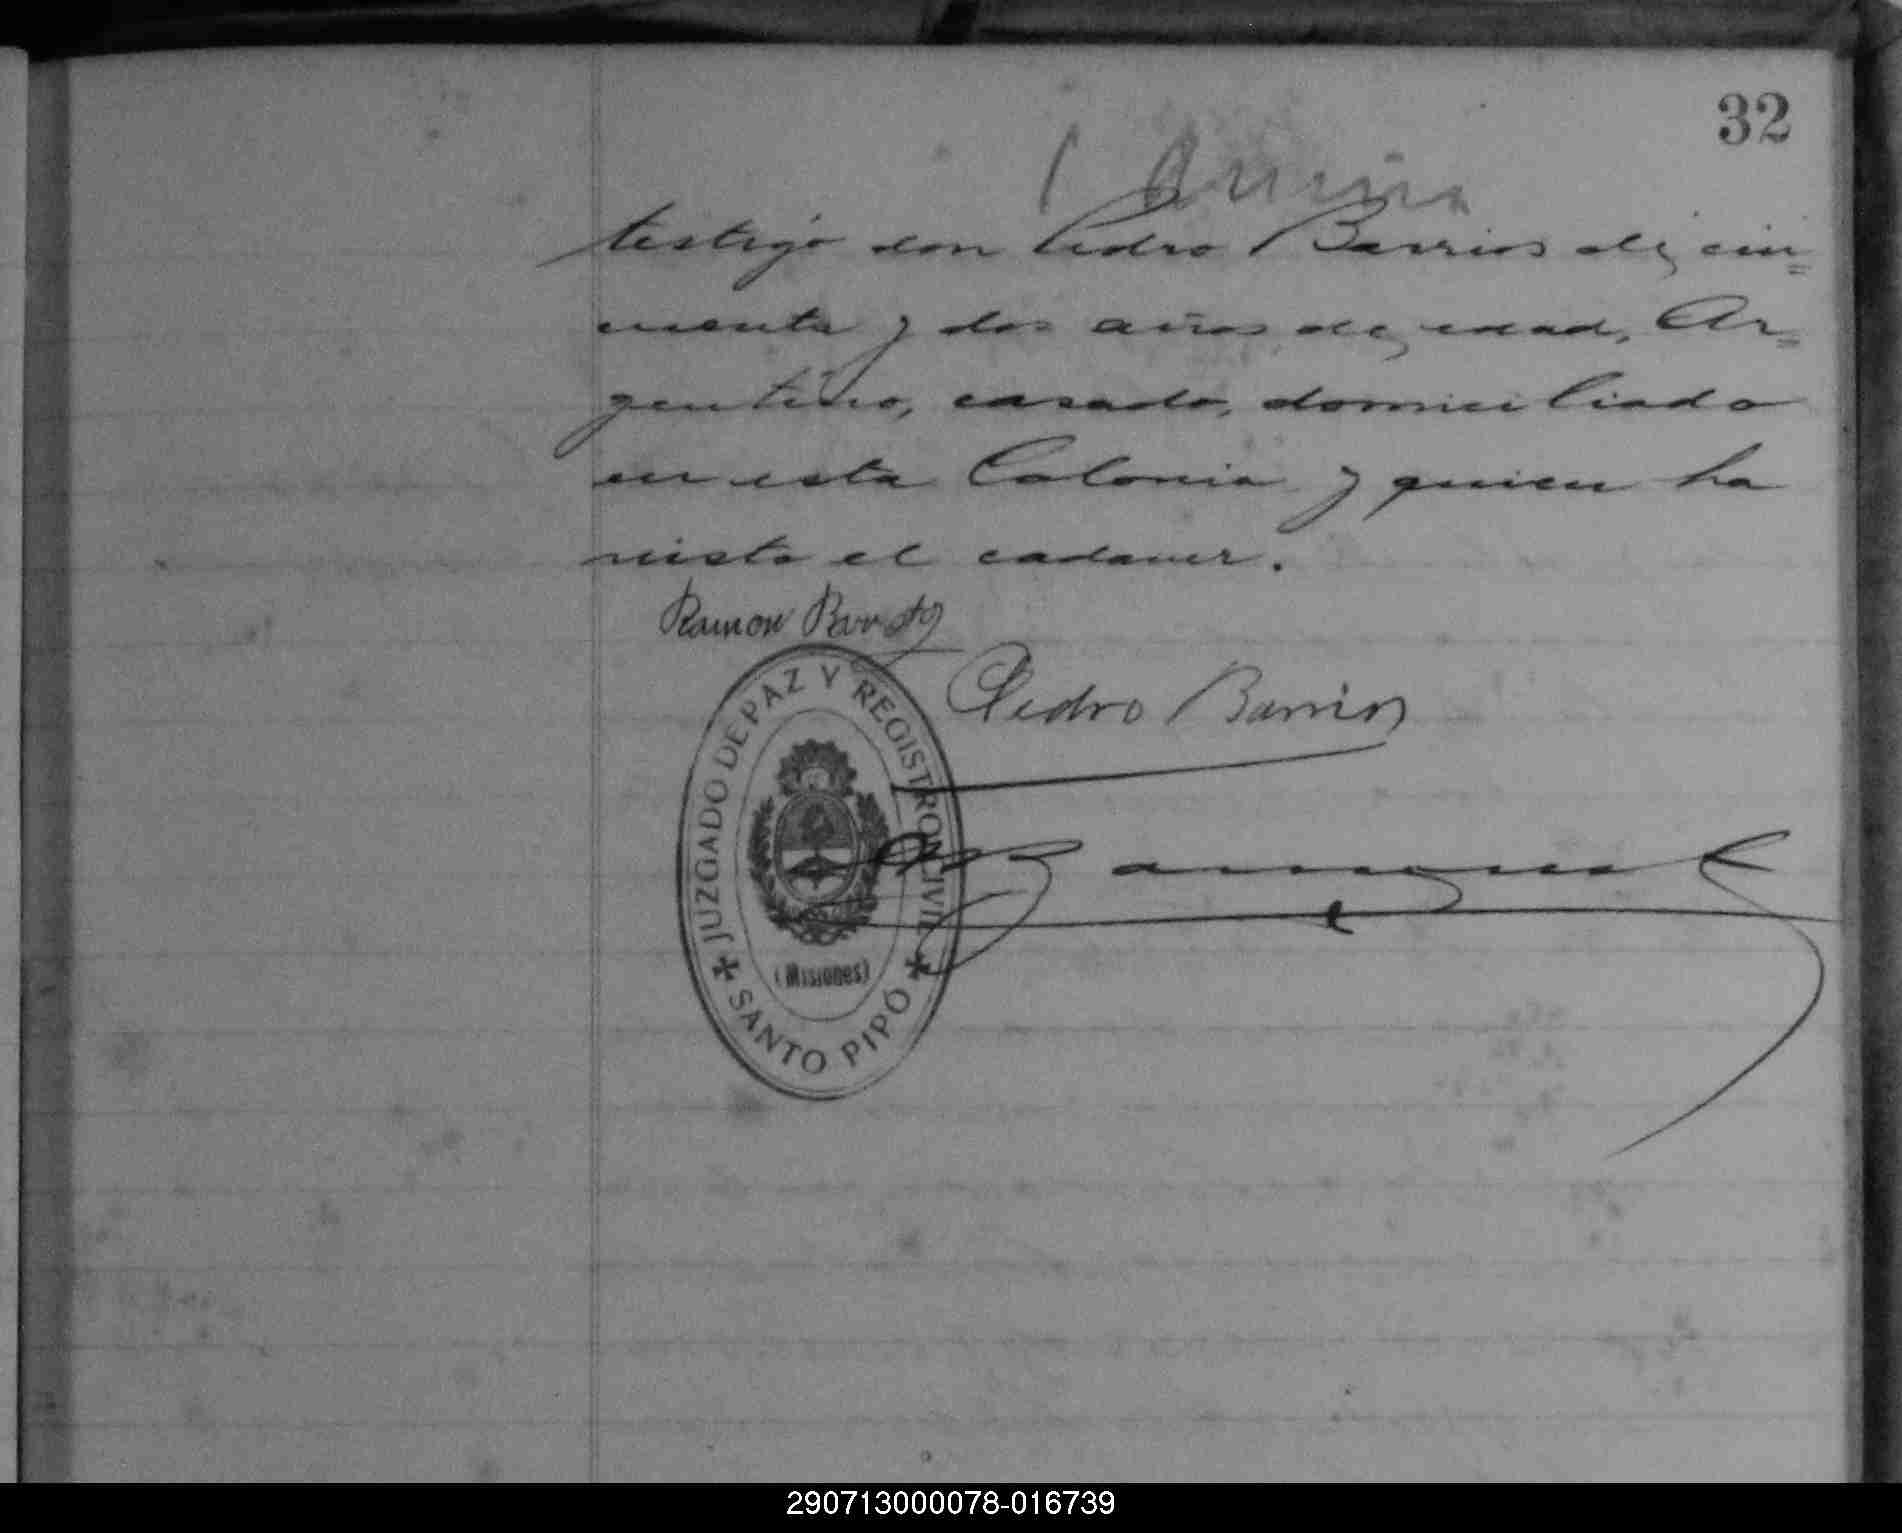 32
testigo don Pedro Barrios de cin=
cuenta y dos años de edad, Ar=
gentino, casado, domiciliado
en esta Colonia y quien ha
visto el cadaver.
Ramon
Pedro Barrios
JUZGADO DE PAZ Y REGISTRO CIVIL
(Misiones)
SANTO PIPÓ
290713000078-016739